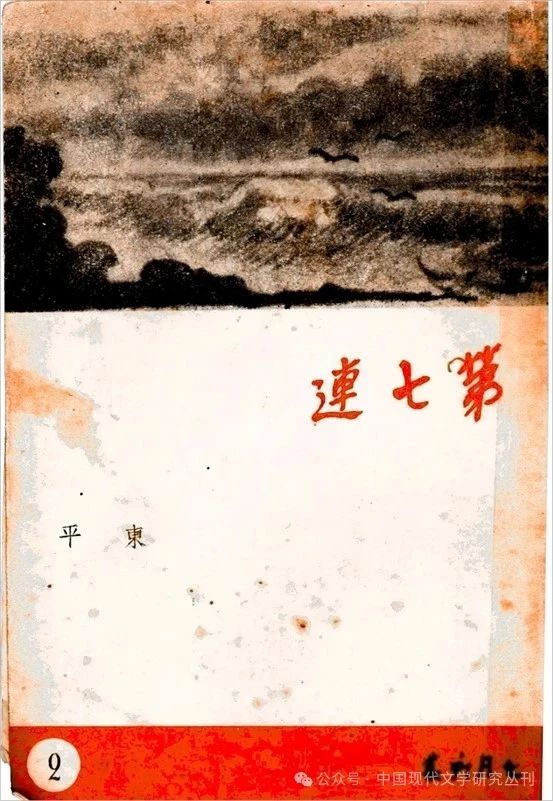 第七連
東平
2
公众号 · 中国现代文学研究丛刊